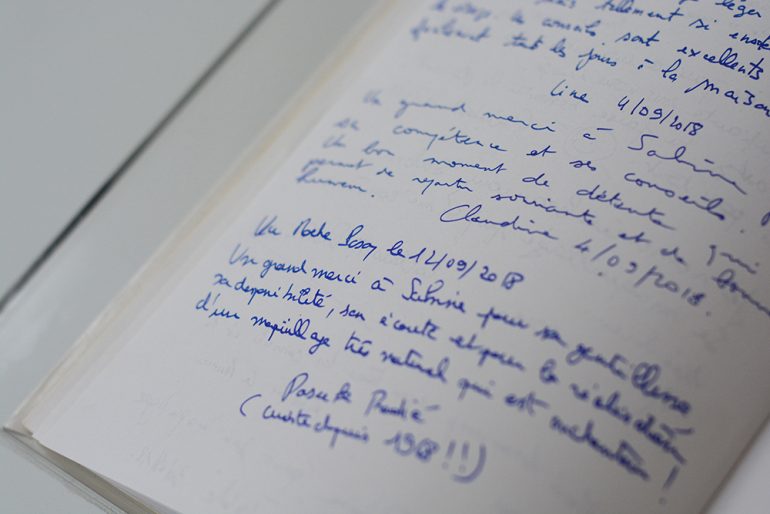 léger
tellement si
conseils sont excellents
tout les jours à la maison
Line 4/09/2018
Un grand merci à Sabrina
sa compétence et ses conseils.
Un bon moment de détente qui
permet de repartir souriante et de bonne
humeur.
Claudine 4/09/2018.
La Roche Posay le 12/09/2018
Un grand merci à Sabrine pour sa gentillesse
sa disponibilité, son écoute et pour la réalisation
d'un maquillage très naturel qui est
Pascale
(curiste depuis 1968!!)